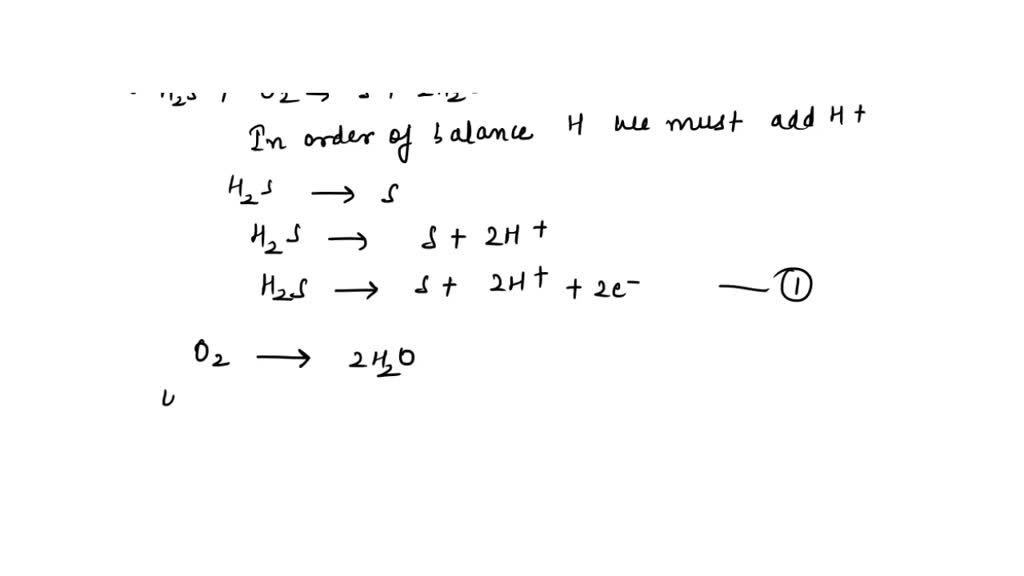 In order of balance H we must add H+
H₂S → S
H₂S → S + 2H⁺
H₂S → S + 2H⁺ + 2e⁻ — ①
O₂ → 2H₂O